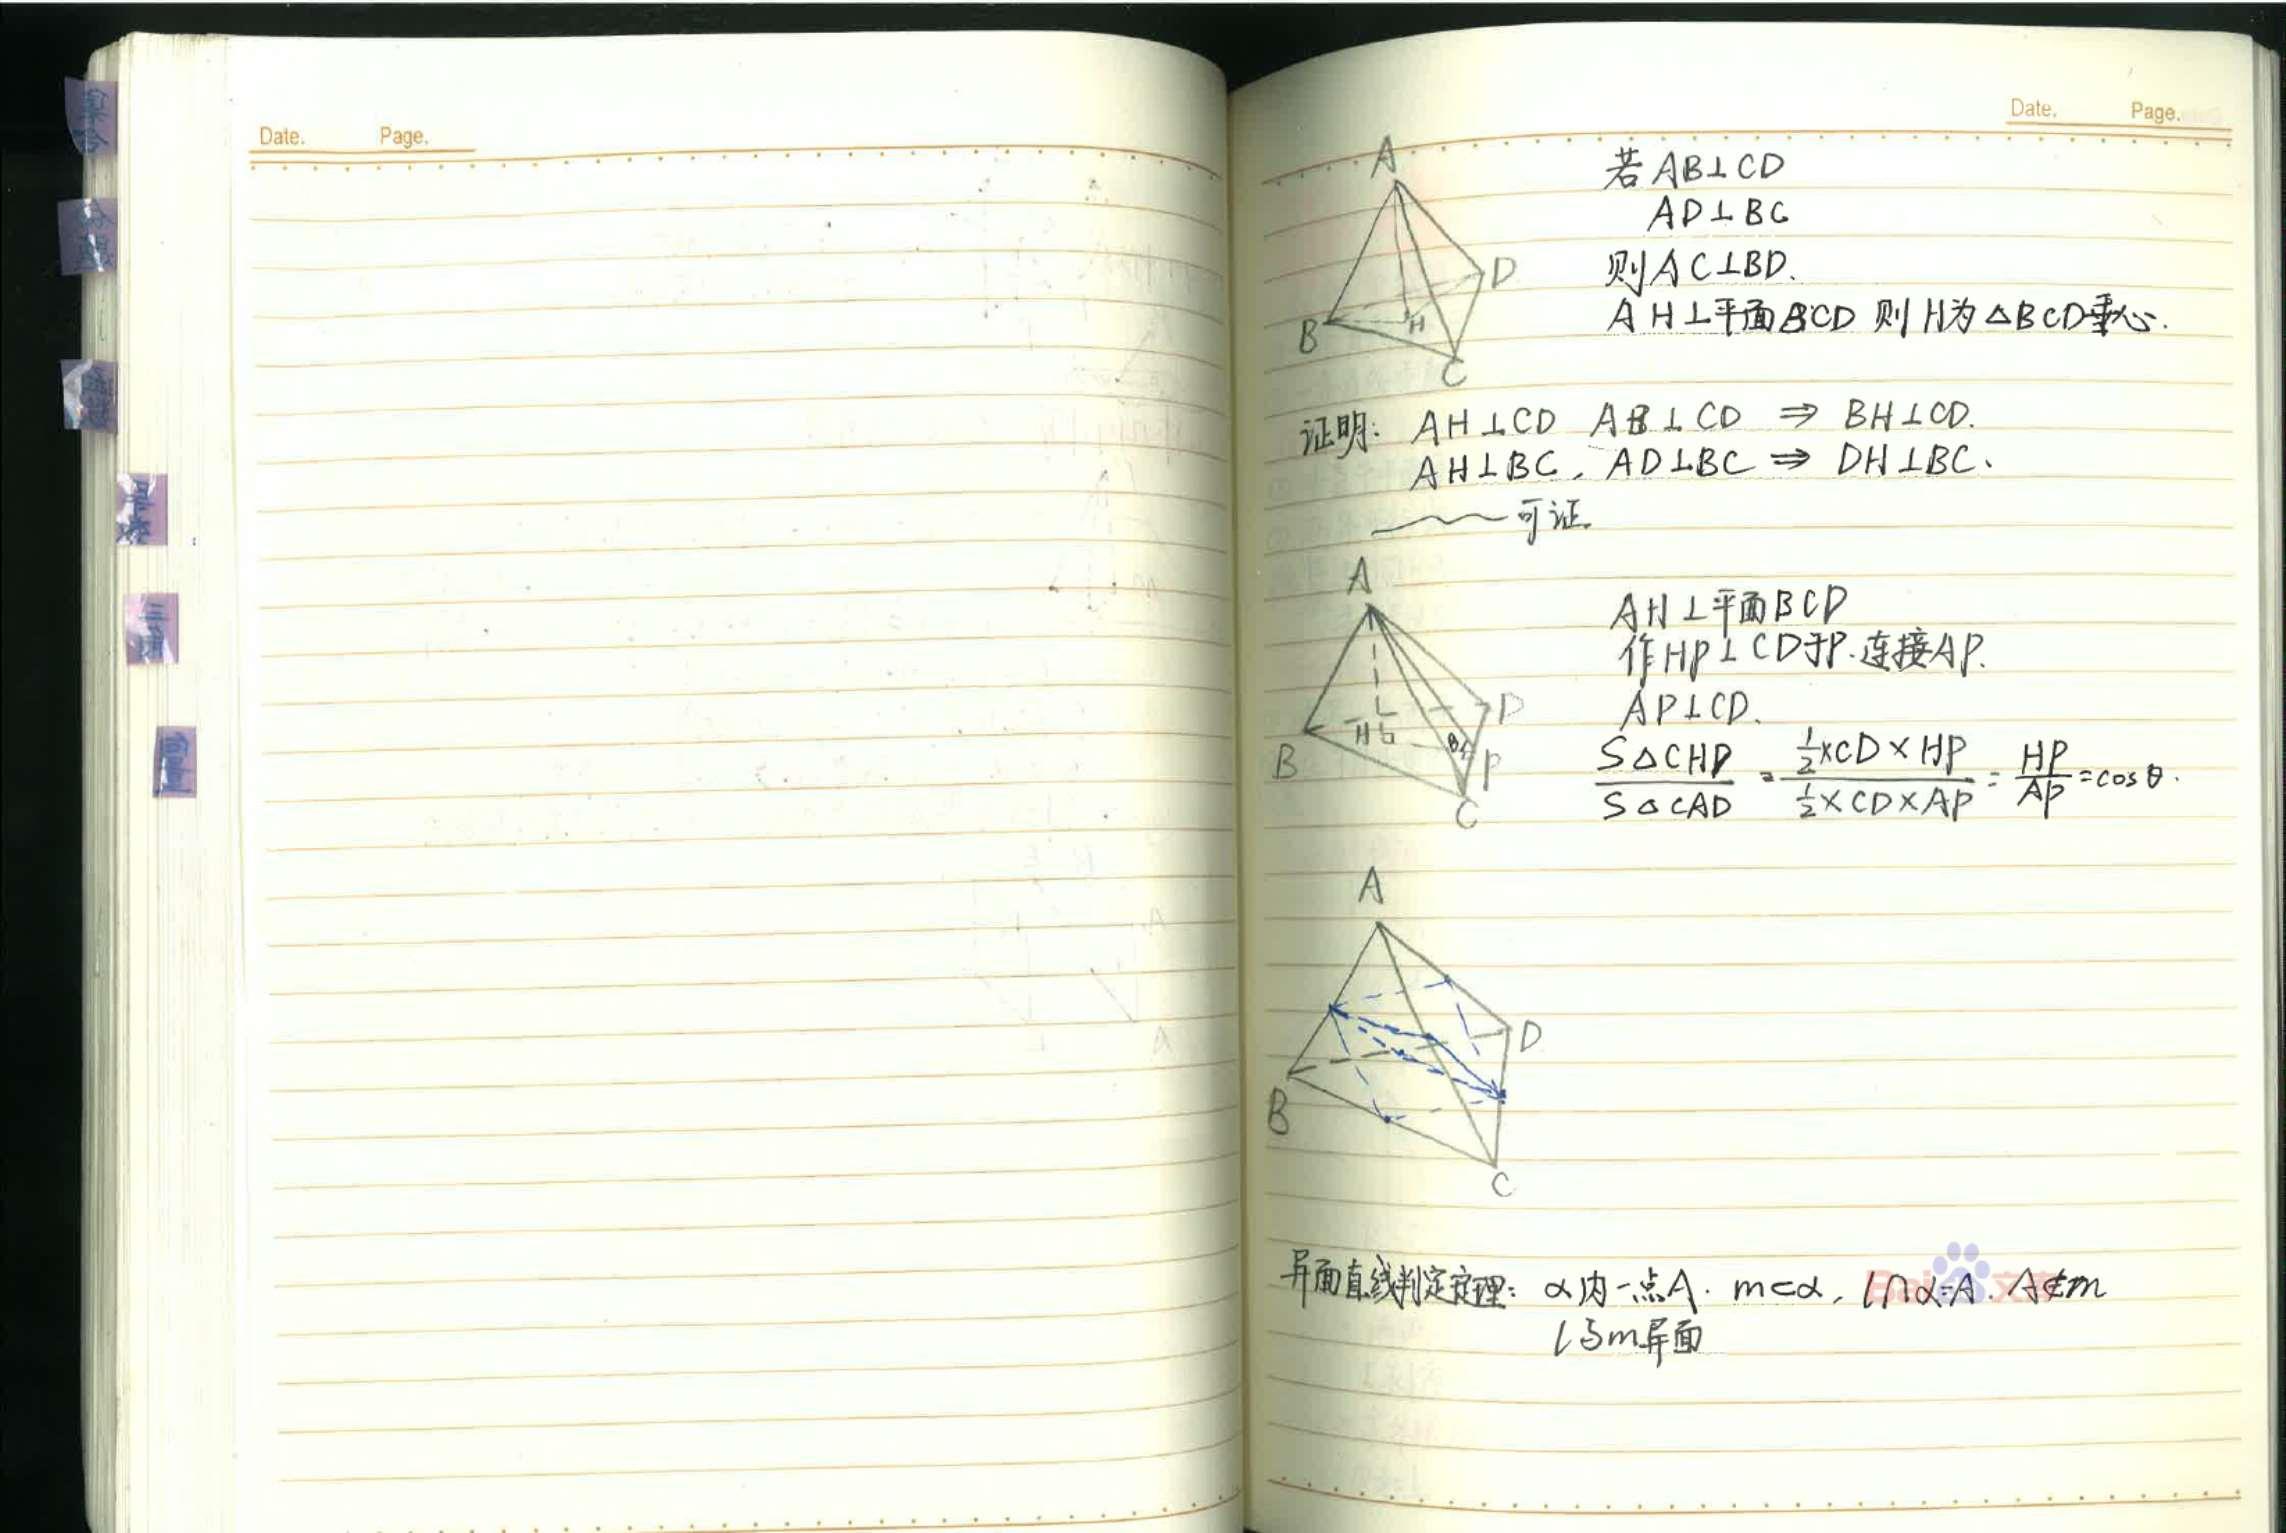 集合
Date. Page.
Date. Page.
A
B
C
D
H
若 AB⊥CD
AD⊥BC
则 AC⊥BD.
AH⊥平面BCD 则H为△BCD垂心.
证明: AH⊥CD AB⊥CD ⇒ BH⊥CD.
AH⊥BC, AD⊥BC ⇒ DH⊥BC.
可证.
A
B
C
D
H
P
θ
AH⊥平面BCD
作HP⊥CD于P.连接AP.
AP⊥CD.
S△CHD / S△CAD = ½×CD×HP / ½×CD×AP = HP / AP = cosθ.
A
B
C
D
异面直线判定定理: α内一点A. m⊂α, l∩α=A. A∉m
l与m异面
三角
向量
Bai 文库